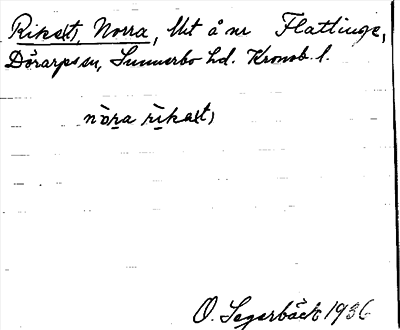 Rika(t), Norra, Mt å nr Flattinge,
Dörarps sn, Sunnerbo hd. Kronob. l.
nòra rìka(t)
O. Segerbäck 1936